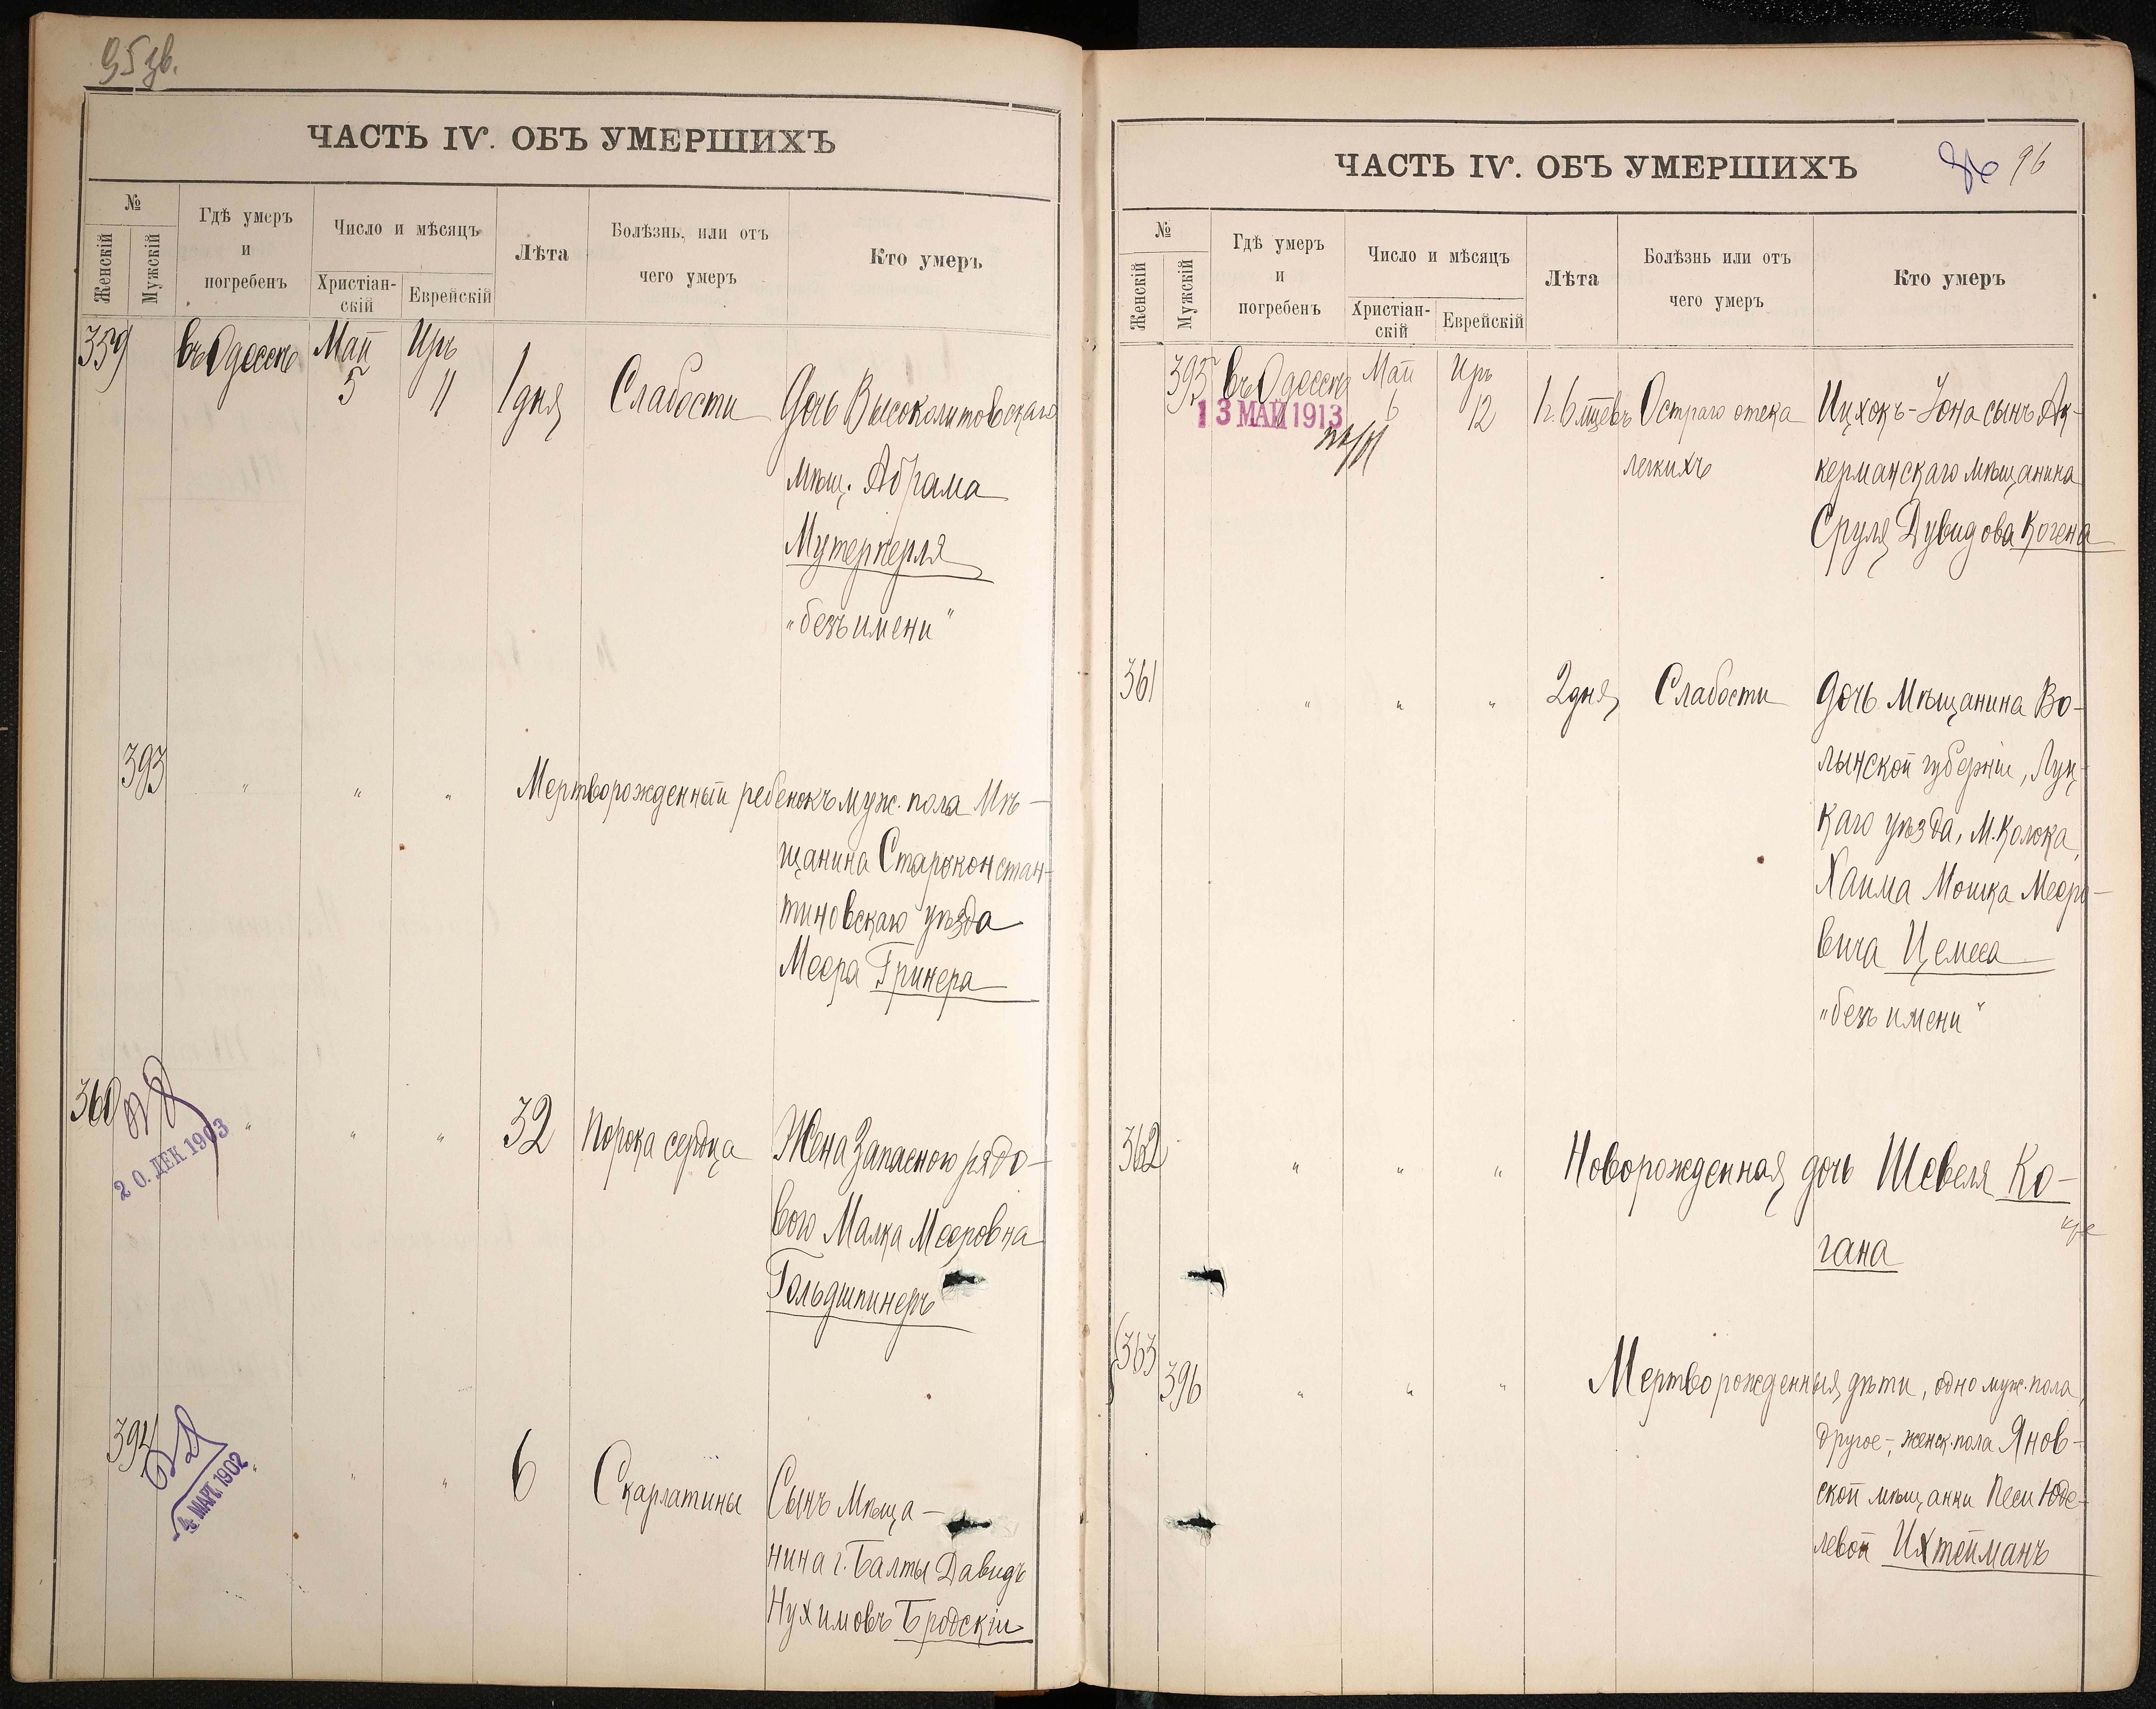 95 зв.
ЧАСТЬ IV. ОБЪ УМЕРШИХЪ
№
Женскій
Мужскій
Гдѣ умеръ
и
погребенъ
Число и мѣсяцъ
Христіан-
скій
Еврейскій
Лѣта
Болѣзнь, или отъ
чего умеръ
Кто умеръ
359 въ Одессѣ Май Иръ
5 11 1 дня Слабости Дочь Высоколитовскаго
мѣщ. Абрама
Мутерперля
"безъ имени"
393 " " " Мертворожденный ребенокъ муж. пола Мѣ-
щанина Староконстан-
тиновскаго уѣзда
Меера Гринера
360 " " " 32 Порока сердца Жена Запасного рядо-
вого Малка Мееровна
Гольдшпинеръ
20. ДЕК 1903
394 " " " 6 Скарлатины Сынъ Мѣща-
нина г. Балты Давидъ
Нухимовъ Бродскій
- 4 МАР. 1902
ЧАСТЬ IV. ОБЪ УМЕРШИХЪ
96
№
Женскій
Мужскій
Гдѣ умеръ
и
погребенъ
Число и мѣсяцъ
Христіан-
скій
Еврейскій
Лѣта
Болѣзнь или отъ
чего умеръ
Кто умеръ
395 въ Одессѣ Май Иръ
6 12 1 г. 6 мѣцевъ Остраго отека Ицхокъ-Іона сынъ Ак-
13 МАЙ 1913
легкихъ керманскаго мѣщанина
Сруля Дувидова Когена
361 " " " 2 дня Слабости Дочь Мѣщанина Во-
лынской губерніи, Луц-
каго уѣзда, М. Колока,
Хаима Мошка Меерo-
вича Цемеса
"безъ имени"
362 " " " Новорожденная дочь Шевеля Ко-
гана
363
396 " " " Мертворожденныя дѣти, одно муж. пола,
другое - женск. пола Янов-
ской мѣщанки Песи Юде-
левой Ихтейманъ